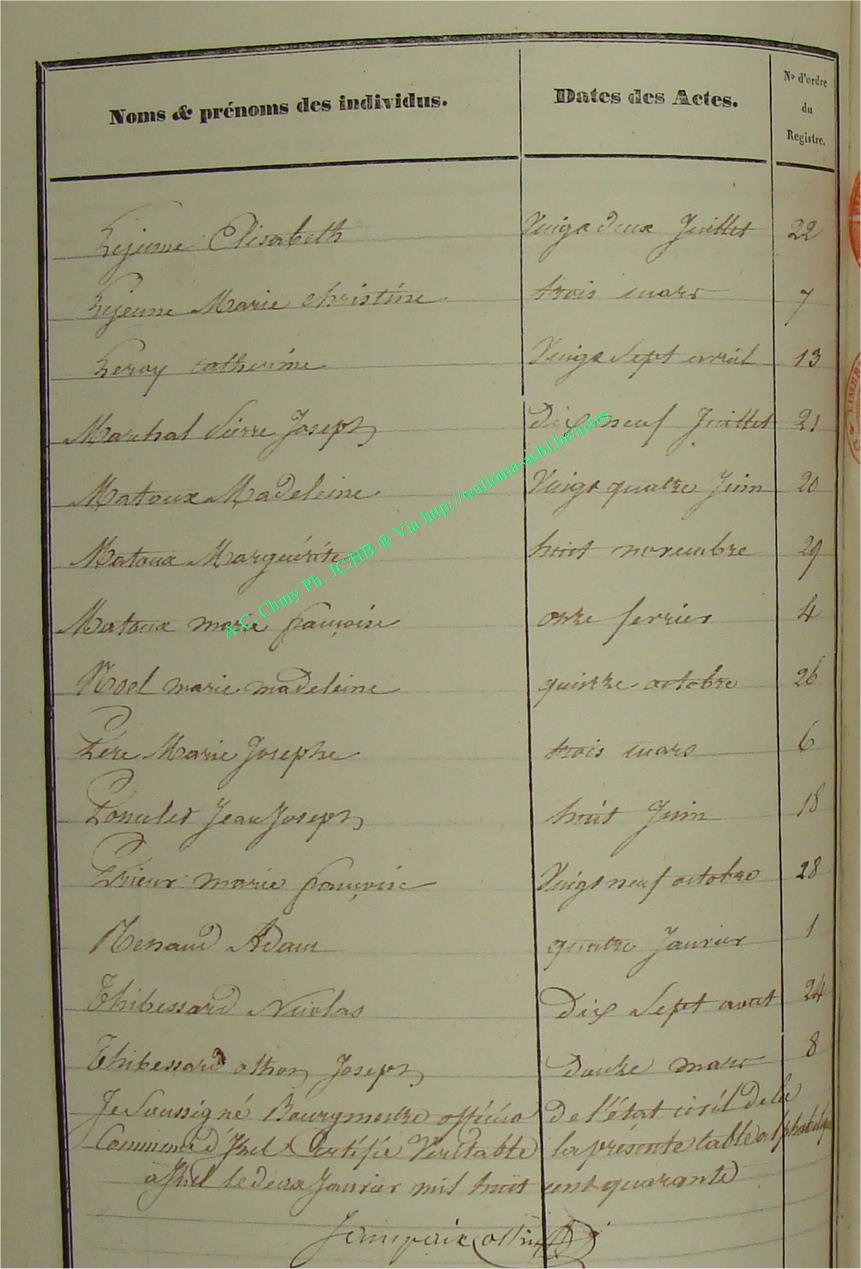 Noms & prénoms des individus. Dates des Actes. No d'ordre du Registre.
Lejeune Elisabeth Vingt deux Juillet 22
Lejeune Marie christine trois mars 7
Leroy catherine Vingt sept avril 13
Marchal Pierre Joseph Dix neuf Juillet 21
Matoux Madeleine Vingt quatre Juin 20
Matoux Marguérite huit novembre 29
Matoux marie françoise onze fevrier 4
Noel marie madeleine quinze octobre 26
Père Marie Josephe trois mars 6
Poncelet Jean Joseph huit Juin 18
Prieur marie françoise Vingt neuf octobre 28
Renaud Adam quatre Janvier 1
Thibessard Nicolas Dix Sept aout 24
Thibessard Joseph douze mars 8
Je Soussigné Bourgmestre officier De l'état civil de la
Commune d'Izel Certifie Veritable la présente table alphabetique
a Izel le deux Janvier mil huit cent quarante
A.C. Chiny Ph. JCHB © Via http://wallonia-asbl.be/acte